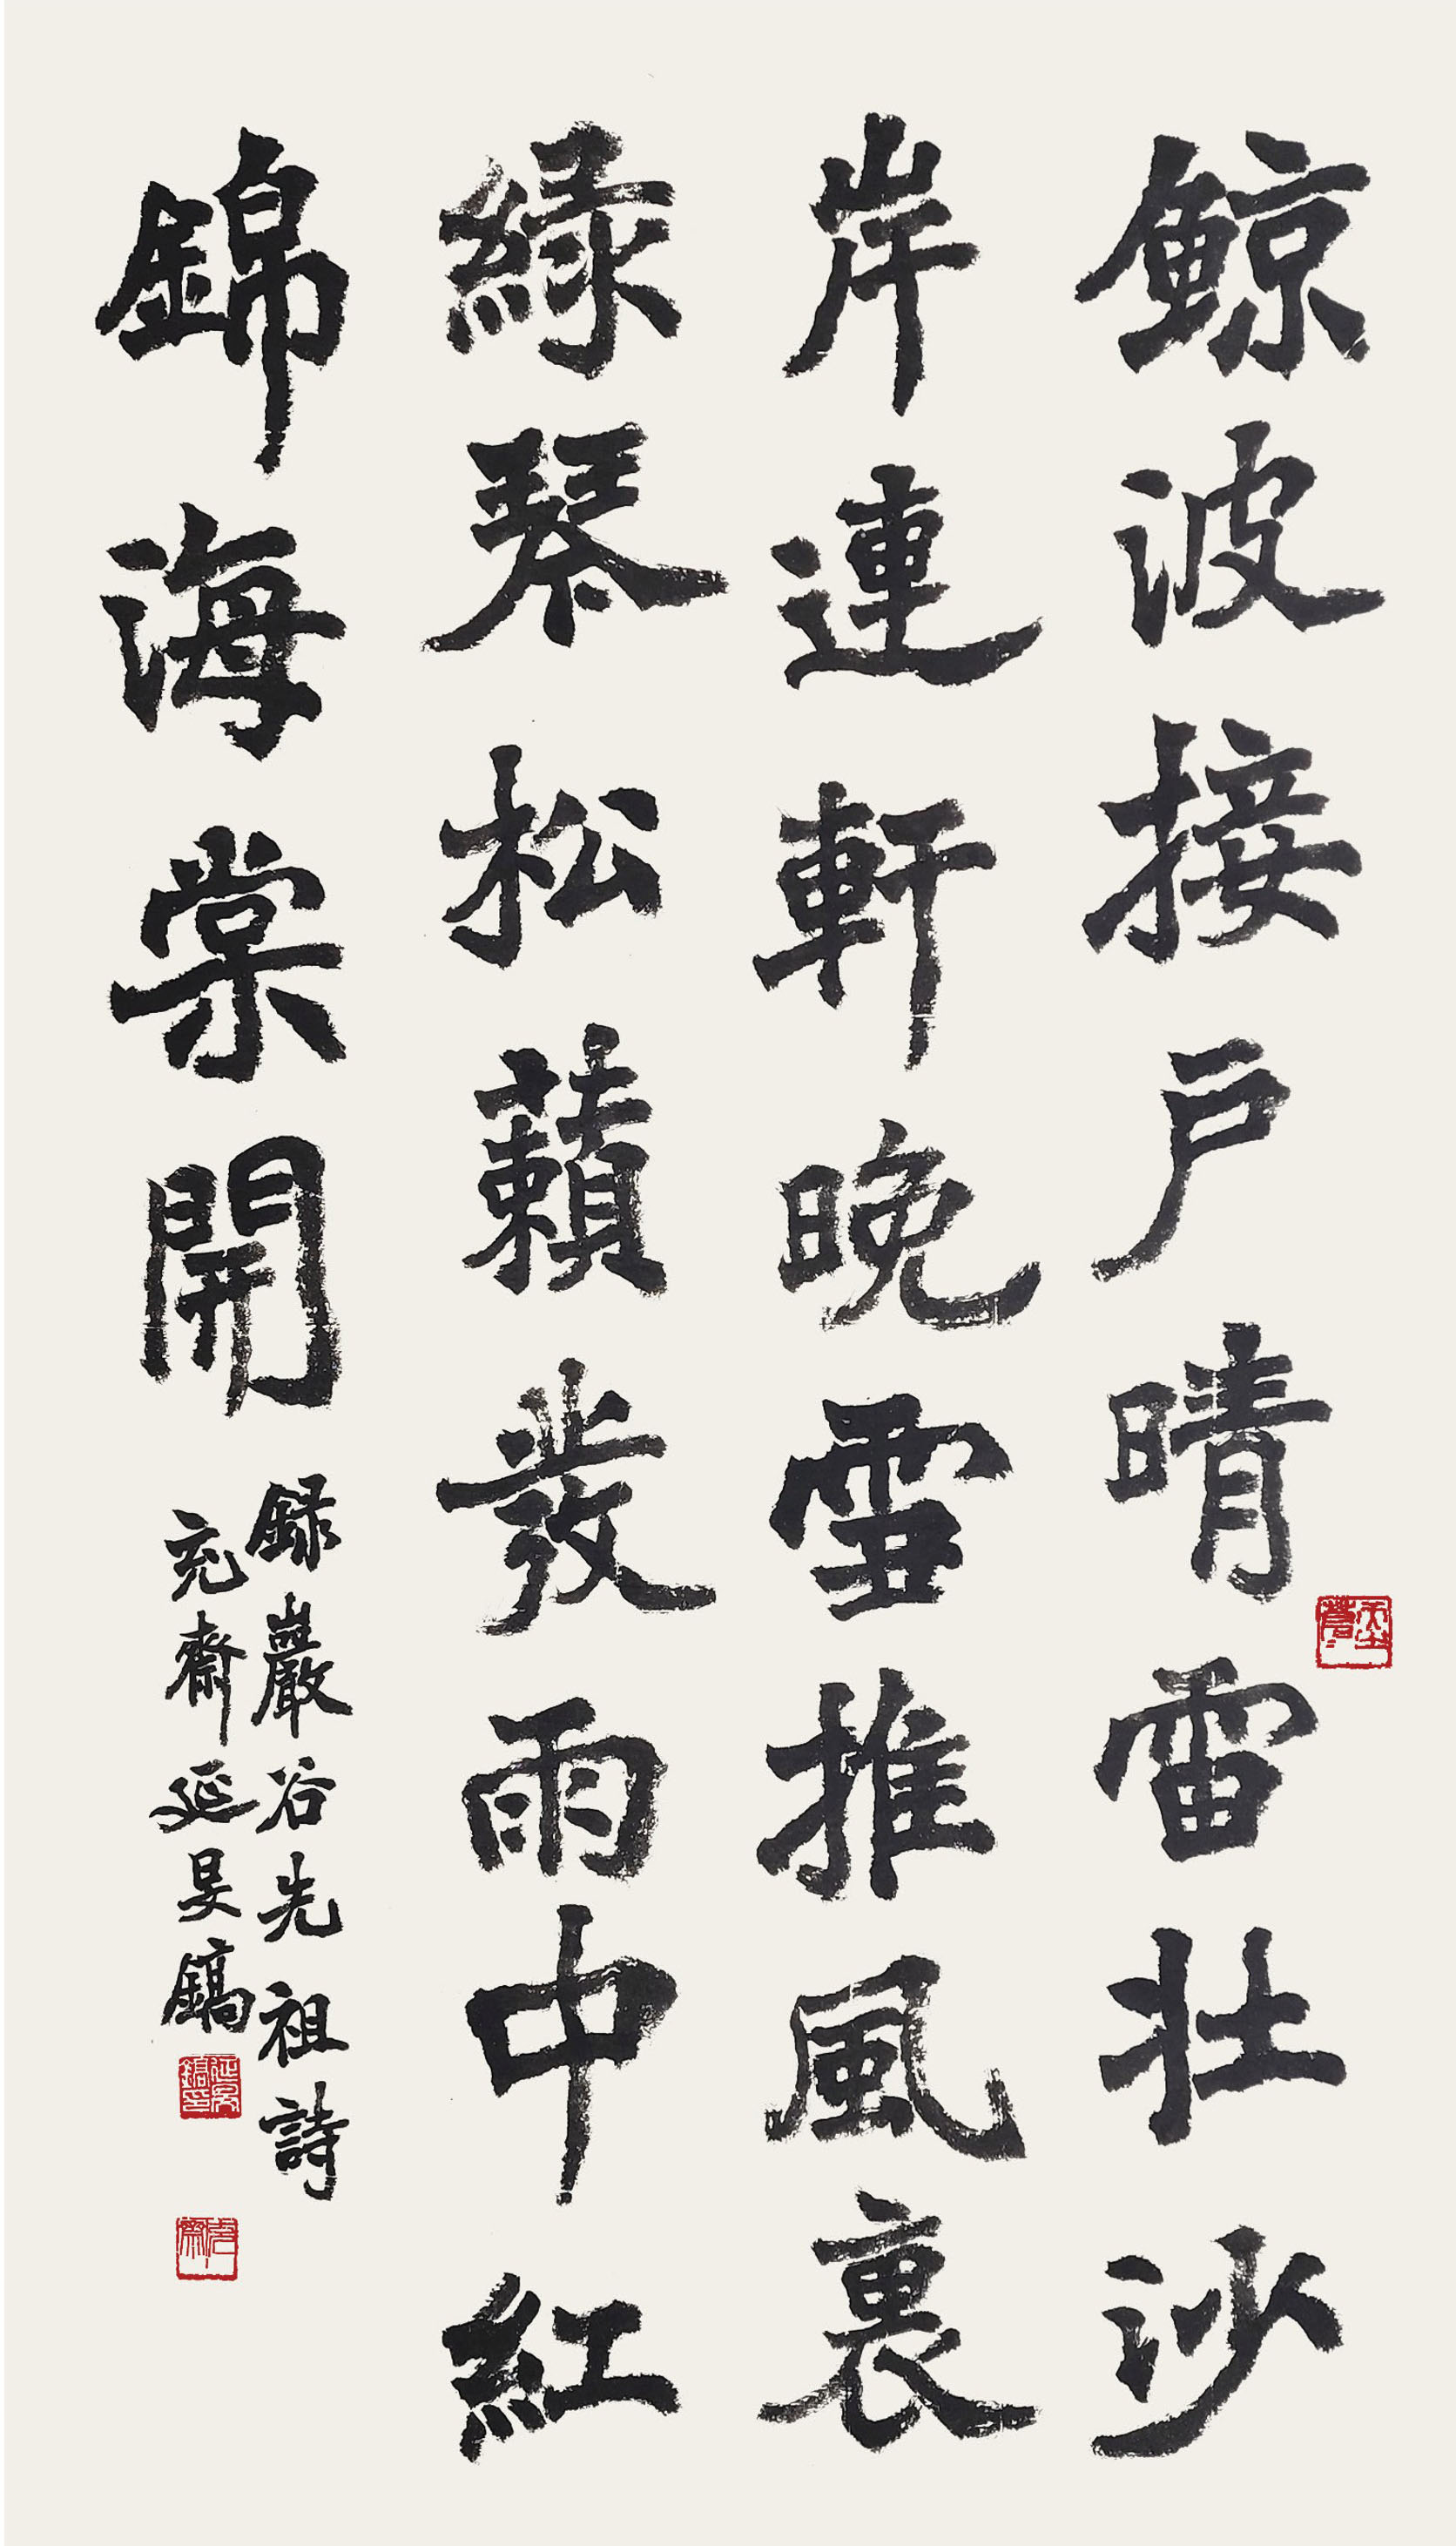 鯨波接戶晴雷壯沙
岸連軒晚雪推風裏
綠琴松藾發雨中紅
錦海棠開
録巖谷先祖詩
充齋延旻鎬